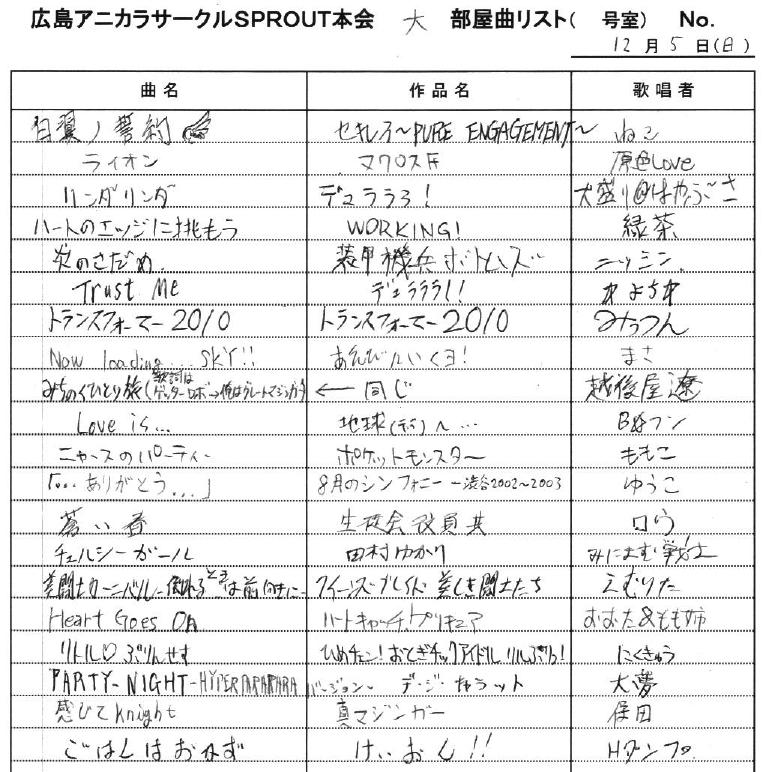 広島アニカラサークルSPROUT本会 大 部屋曲リスト( 号室) No.
12月5日(日)
曲名 作品名 歌唱者
白翼ノ誓約 セキレイ～PURE ENGAGEMENT～ ねこ
ライオン マクロスF 原色Love
リンダリンダ デュラララ! 大盛り@はやぶさ
ハートのエッジに挑もう WORKING! 緑茶
炎のさだめ 装甲機兵ボトムズ ニッシン
Trust Me デュラララ!!
トランスフォーマー2010 トランスフォーマー2010 みつつん
Now loading...SKY!! あそびにいくヨ! まさ
みちのくひとり旅(歌詞はゲッターロボ→俺はグレートマジンガー) ← 同じ 越後屋遼
Love is... 地球(テラ)へ…
ニャースのパーティー ポケットモンスター ももこ
「…ありがとう…」 8月のシンフォニー－渋谷2002～2003 ゆうこ
蒼い春 生徒会役員共 ロウ
チェルシーガール 田村ゆかり みにまむ戦士
美闘士カーニバル－倒れるときは前向きに－ クイーンズブレイド 美しき闘士たち えむりた
Heart Goes On ハートキャッチ!プリキュア おむた&もも姉
リトル♡ぷりんせす ひめチェン!おとぎチックアイドル リルぷりっ! にくきゅう
PARTY-NIGHT-HYPERPAPAPARA バージョン－ デ・ジ・キャラット 大夢
感じてknight 真マジンガー 保田
ごはんはおかず けいおん!! Hダンプ